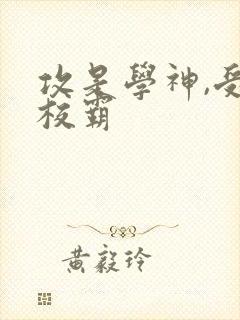 攻是學神,受
校霸
黃毅玲